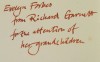 Evelyn Forbes
from Richard Garnett
for the attention of
her grandchildren